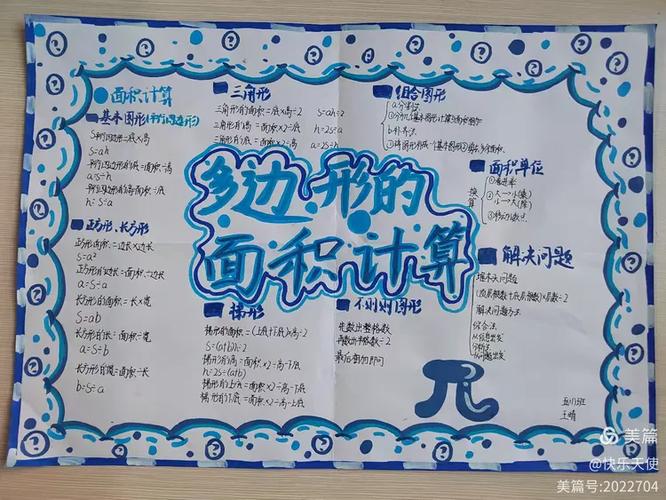 多边形的
面积计算
面积计算
基本图形(平行四边形)
S平行四边形=底×高
S=ah
平行四边形的底=面积÷高
a=S÷h
平行四边形的高=面积÷底
h=S÷a
正方形、长方形
正方形面积=边长×边长
S=a²
正方形的边长=面积÷边长
a=S÷a
长方形的面积=长×宽
S=ab
长方形的长=面积÷宽
a=S÷b
长方形的宽=面积÷长
b=S÷a
三角形
三角形的面积=底×高÷2
S=ah÷2
三角形的高=面积×2÷底
h=2S÷a
三角形的底=面积×2÷高
a=2S÷h
组合图形
a.分割法
b.补齐法
面积单位
换算
①看进率
②大→小(乘)
小→大(除)
③移动小数点
解决问题
堆木头问题
(顶层根数+底层根数)×层数÷2
解决问题方法
综合法
从信息出发
分析法
从问题出发
梯形
梯形的面积=(上底+下底)×高÷2
S=(a+b)h÷2
梯形的高=面积×2÷上下底
h=2S÷(a+b)
梯形的上底=面积×2÷高-下底
梯形的下底=面积×2÷高-上底
不规则图形
先数出整格数
再数出半格数÷2
π
王晴
美篇
@快乐天使
美篇号:2022704